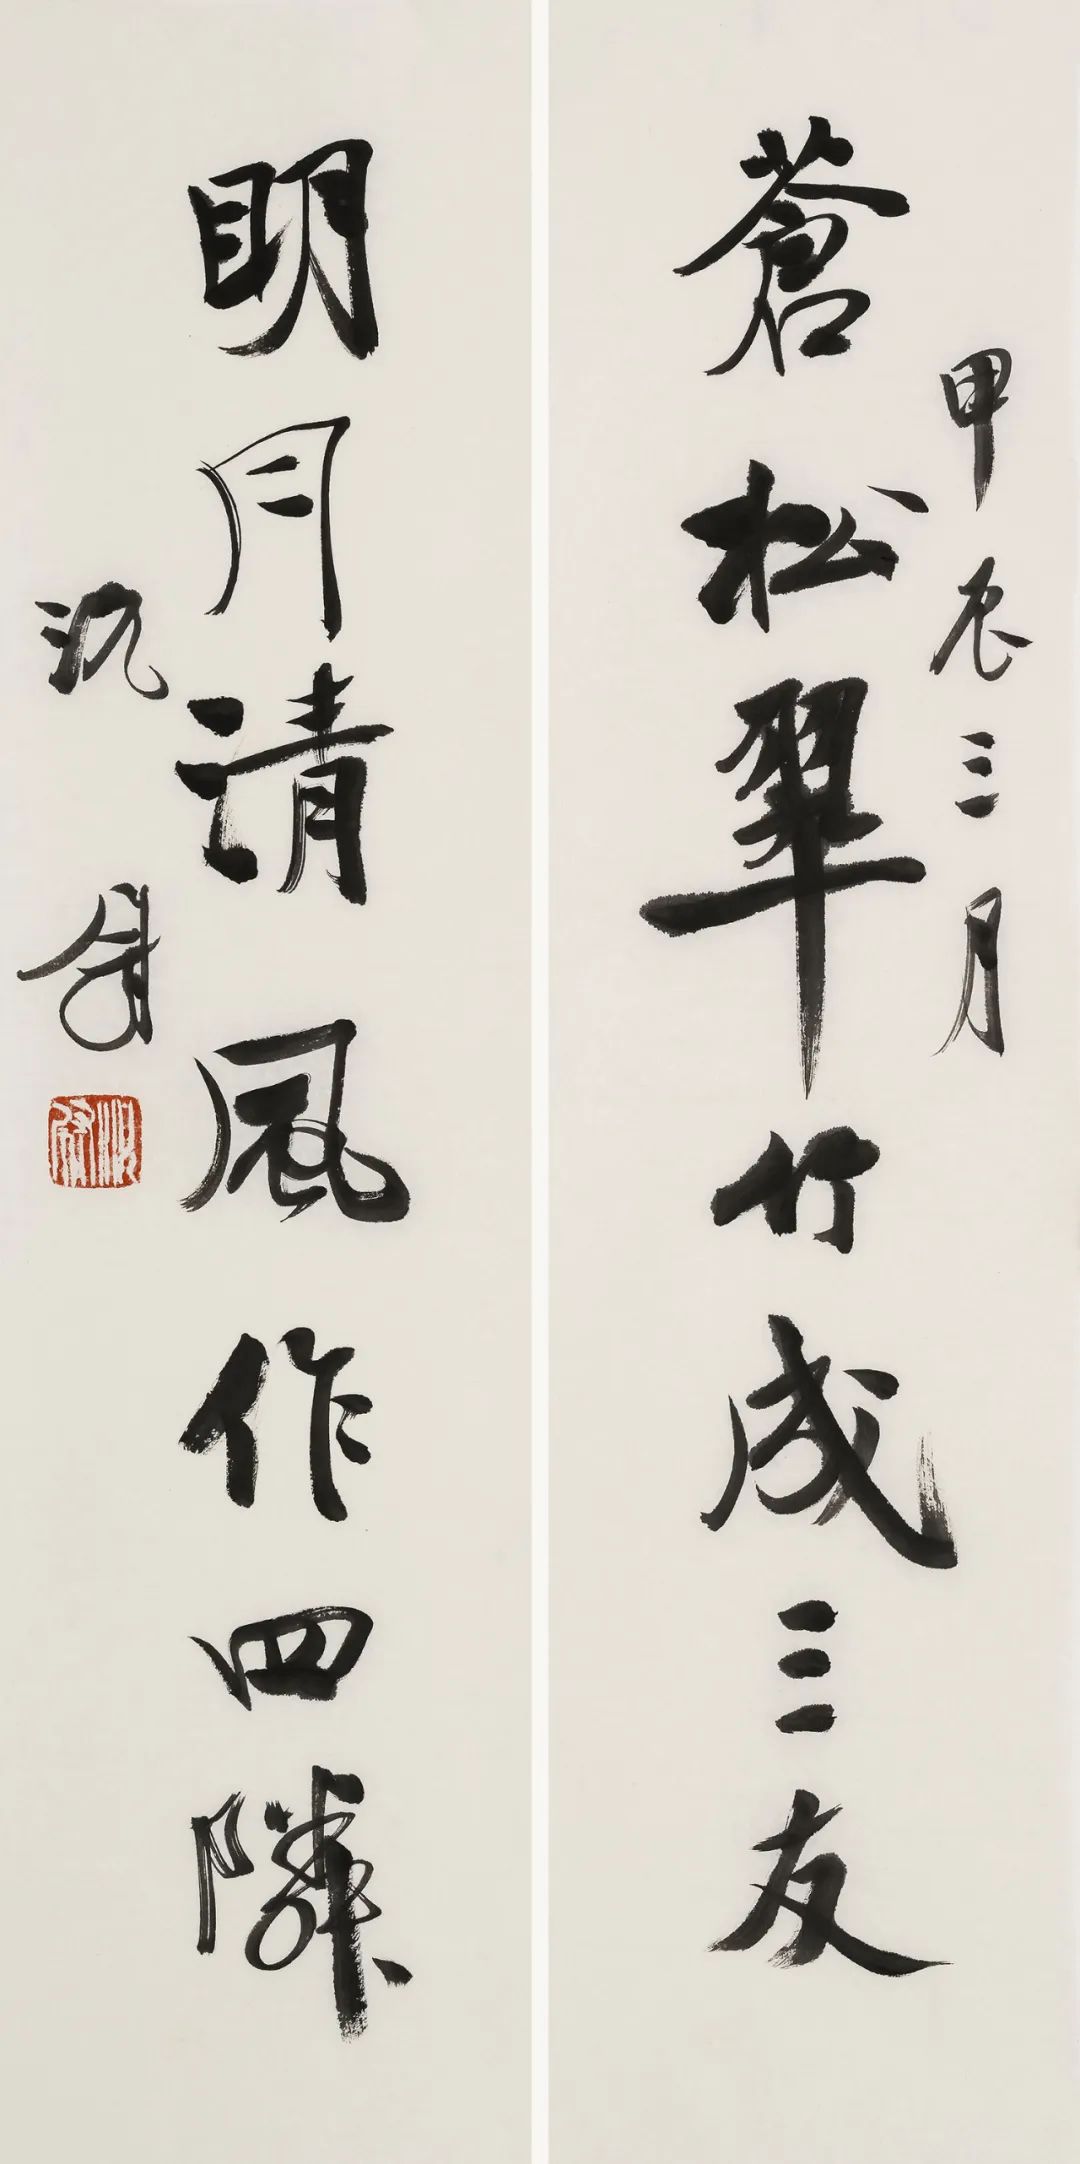 甲辰三月
蒼松翠竹成三友
明月清風作四隣